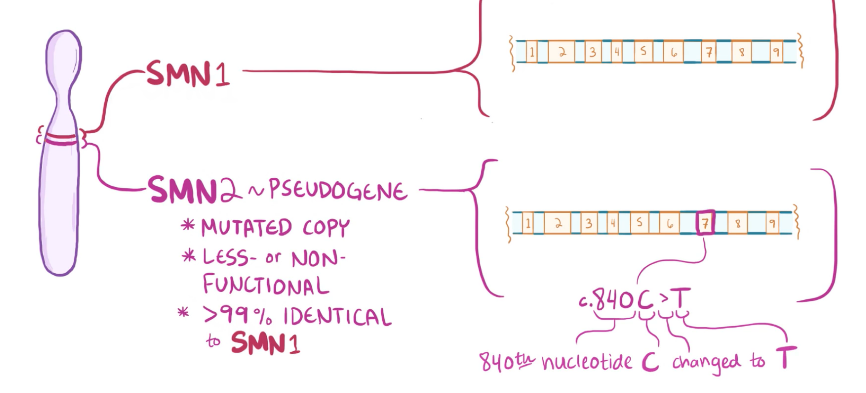 SMN1
1 2 3 4 5 6 7 8 9
SMN2 ~ PSEUDOGENE
* MUTATED COPY
* LESS- OR NON-
FUNCTIONAL
* >99% IDENTICAL
to SMN1
1 2 3 4 5 6 7 8 9
c.840C>T
840th nucleotide C changed to T